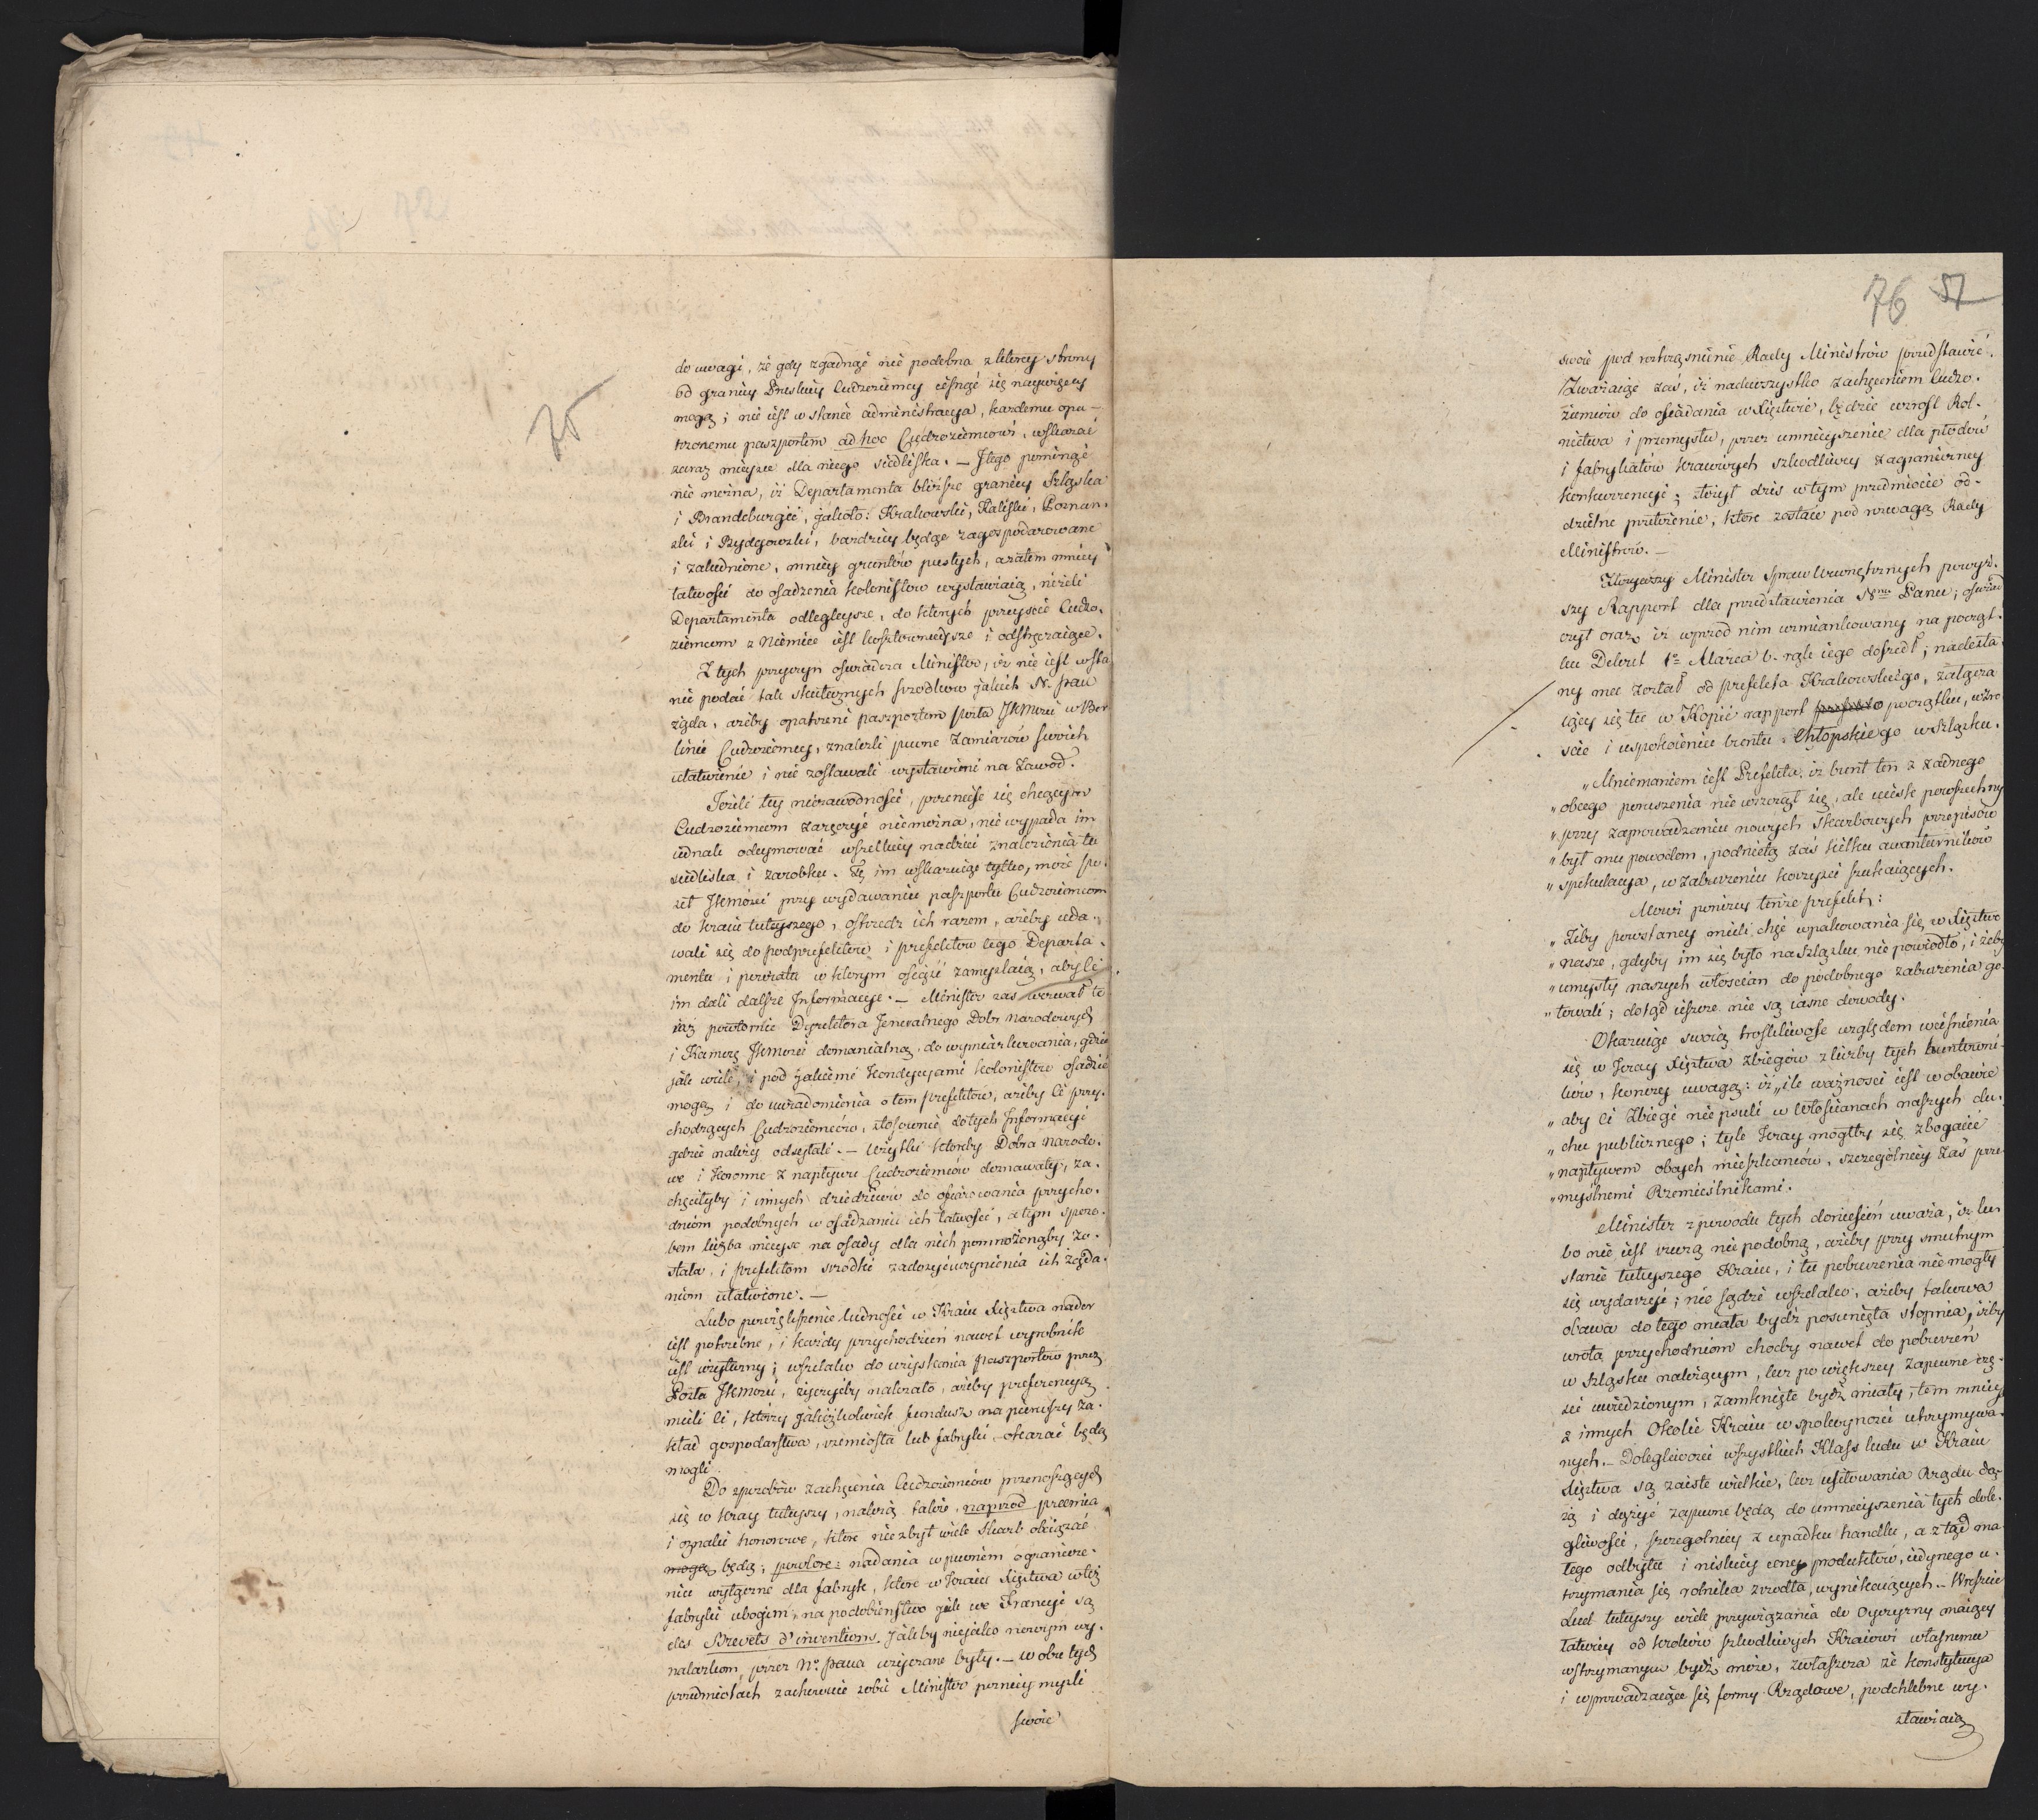 75
do uwagi, że gdy zgadnąć nie podobna z ktorey strony
od granicy Pruskiey Cudzoziemcy cisnąć się naywięcey
mogą; nie iest w stanie administracya, każdemu opa-
trzonemu paszportem ad hoc Cudzoziemcowi, wskazać
zaraz mieysce dla niego siedliska. — J tego pominąć
nie można, iż Departamenta bliższe granicy Szląska
i Brandeburgii, jakoto: Krakowski, Kaliski, Poznań.
ski i Bydgowski, bardziey będąc zagospodarowane
i zaludnione, mniey gruntów pustych, a zatem mniey
łatwości do osadzenia kolonistow wystawiaią, niżeli
Departamenta odlegleysze, do ktorych przeyscie Cudzo.
ziemcom z Niemiec iest kosztownieysze i odstręczaiące.
Z tych przyczyn oswiadcza Minister, iż nie iest w sta
nie podać tak skutecznych srzodkow jakich N. Pan
żąda, ażeby opatrzeni paszportem posła JKMości w Ber
linie Cudzoziemcy, znalezli pewne zamiarów swoich
ułatwienie i nie zostawali wystawieni na zawod.
Jeżeli tey niezawodności, przenieść się chcącym
Cudzoziemcom zaręczyć niemożna, nie wypada im
iednak odeymować wszelkiey nadziei znalezienia tu
siedliska i zarobku. Tę im wskazuiąc tylko, może po.
seł JKMości przy wydawaniu paszportu Cudzoziemcom
do kraiu tuteyszego, ostrzedz ich razem, ażeby uda.
wali się do podprefektow i prefektow tego Departa.
mentu i powiatu w ktorym osieść zamyslaią, aby ci
im dali dalsze Informacye. — Minister zas wezwał te
raz powtornie Dyrektora Jeneralnego Dobr Narodowych
i Kamerę JKMości domanialną, do wymiarkowania, gdzie
jak wiele, i pod jakiemi kondycyami kolonistow osadzić
mogą i do uwiadomienia o tem prefektów, ażeby ci przy.
chodzących Cudzoziemcow, stosownie do tych Informacyi
gdzie należy odsyłali. — Użytki ktoreby Dobra Narodo.
we i Koronne z napływu Cudzoziemców doznawały, za.
chęciłyby i innych dziedziców do ofiarowania przycho.
dniom podobnych w osadzaniu ich łatwości, a tym sposo.
bem liczba mieysc na osady dla nich pomnożonąby zo.
stała, i prefektom srzodki zadosyćuczynienia ich żąda.
niom ułatwione. —
Lubo powiększenie ludności w Kraiu Xięztwa nader
iest potrzebne, i każdy przychodzień nawet wyrobnik
iest użyteczny; wszelako do uzyskania paszportow przez
Posła JKMości, życzyćby należało, ażeby preferencyą
mieli ci, ktorzy jakiżkolwiek fundusz na pierwszy za.
kład gospodarstwa, rzemiosła lub fabryki okazać będą
mogli.
Do sposobów zachęcenia Cudzoziemców przenoszących
się w kray tuteyszy, należą także, naprzod præmia
i oznaki honorowe, ktore niezbyt wiele Skarb obciążać
mogą będą; powtore: nadania w pewnem ogranicze.
niu wyłączne dla fabryk, ktore w kraiu Xięztwa w też
fabryki ubogim, na podobieństwo jak we Francyi są
des Brevets d'inventions. Jakby niejako nowym wy.
nalazkom, przez N. Pana użyczane były. — W obu tych
przedmiotach zachowuie sobie Minister poźniey mysli
swoie
76 57
swoie pod roztrząsnienie Rady Ministrow przedstawić.
Zważaiąc zaś, iż nadewszystko zachęceniem Cudzo.
ziemcow do osiadania w Xięztwie, będzie wzrost Rol.
nictwa i przemysłu, przez umnieyszenie dla płodów
i fabrykatów kraiowych szkodliwey zagraniczney
konkurrencyi; złożył dzis w tym przedmiocie od.
dzielne przełożenie, ktore zostaie pod rozwagą Rady
Ministrów. —
Złożywszy Minister Spraw Wewnętrznych powyż.
szy Rapport dla przedstawienia Nmu Panu; oswiad
czył oraz iż wprzod nim wzmiankowany na począt.
ku Dekret 1o Marca b. r. rąk iego doszedł; nadesła
ny mu został od prefekta Krakowskiego, załącza
iący się tu w Kopii rapport prefekta o początku, wzro
scie i uspokoieniu buntu Chłopskiego w Szląsku.
„Mniemaniem iest Prefekta, iż bunt ten z żadnego
„obcego poruszenia nie wszczął się, ale ucisk powszechny
„przy zaprowadzaniu nowych Skarbowych przepisów
„był mu powodem, podnietą zaś kilku awanturników
„spekulacya, w zaburzeniu korzysci szukaiących.
Mowi poniżey tenże prefekt:
„Żeby powstańcy mieli chęć wpakowania się w Xięztwo
„nasze, gdyby im się było na Szląsku nie powiodło, i żeby
„umysły naszych włoscian do podobnego zaburzenia go.
„towali; dotąd ieszcze nie są iasne dowody.
Okazuiąc swoią troskliwość względem wcisnienia
się w kray Xięztwa zbiegów z liczby tych buntowni.
ków, kończy uwagą: iż „ile ważności iest w obawie
„aby ci zbiegi nie psuli w Włościanach naszych du.
„chu publicznego; tyle kray mogłby się zbogacić
„napływem obcych mieszkańców, szczególniey zaś prze
„myślnemi Rzemieślnikami.
Minister z powodu tych doniesień uważa, iż lu.
bo nie iest rzeczą nie podobną, ażeby przy smutnym
stanie tuteyszego Kraiu, i tu poburzenia nie mogły
się wydarzyć; nie sądzi wszelako, ażeby takowa
obawa do tego miała bydź posunięta stopnia, iżby
wrota przychodniom choćby nawet do poburzeń
w Szląsku należącym, lecz po większey zapewne czę.
ści uwiedzionym, zamknięte bydź miały, tem mniey
z innych Okolic Kraiu w spokoynosci utrzymywa.
nych. — Dolegliwosci wszystkich Klass ludu w Kraiu
Xięztwa są zaiste wielkie, lecz usiłowania Rządu dą.
żą i dążyć zapewne będą do umnieyszenia tych dole.
gliwości, szczegolniey z upadku handlu, a ztąd ma
łego odbytu i niskiey ceny produktów, iedynego u.
trzymania się rolnika zrodła, wynikaiących. — Wreszcie
Lud tuteyszy wiele przywiązania do Oyczyzny maiący
łatwiey od kroków szkodliwych Kraiowi własnemu
wstrzymanym bydź może, zwłaszcza że konstytucya
i wprowadzaiące się formy Rządowe, podchlebne wy.
stawiaią